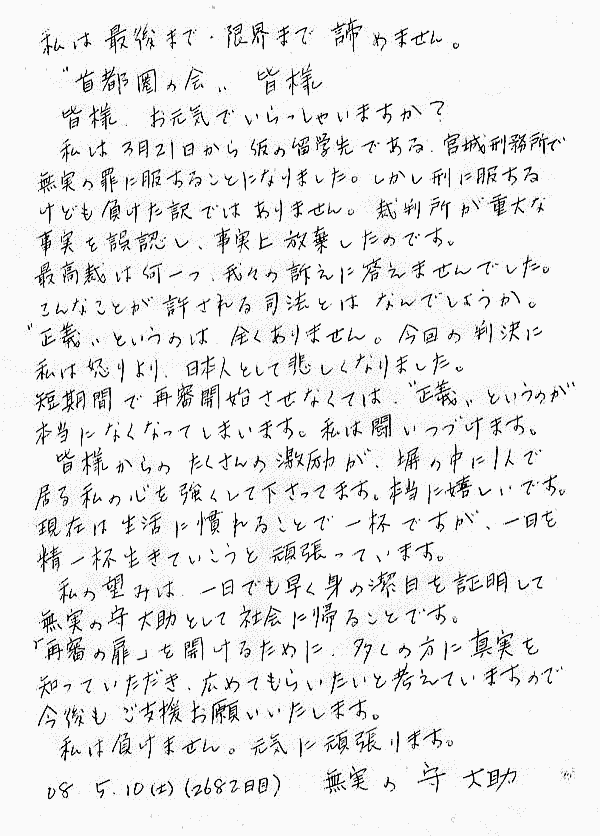 私は最後まで・限界まで諦めません。
"首都圏の会" 皆様
皆様、お元気でいらっしゃいますか？
私は3月21日から仮の留学先である、宮城刑務所で
無実の罪に服することになりました。しかし刑に服する
けども負けた訳ではありません。裁判所が重大な
事実を誤認し、事実上放棄したのです。
最高裁は何一つ、我々の訴えに答えませんでした。
こんなことが許される司法とはなんでしょうか。
"正義"というのは全くありません。今回の判決に
私は怒りより、日本人として悲しくなりました。
短期間で再審開始させなくては、"正義"というのが
本当になくなってしまいます。私は闘いつづけます。
皆様からのたくさんの激励が、塀の中に1人で
居る私の心を強くして下さってます。本当に嬉しいです。
現在は生活に慣れることで一杯ですが、一日を
精一杯生きていこうと頑張っています。
私の望みは、一日でも早く身の潔白を証明して
無実の守大助として社会に帰ることです。
「再審の扉」を開けるために、多くの方に真実を
知っていただき、広めてもらいたいと考えていますので
今後もご支援お願いいたします。
私は負けません。元気に頑張ります。
08 5.10(土)(2682日目) 無実の守大助